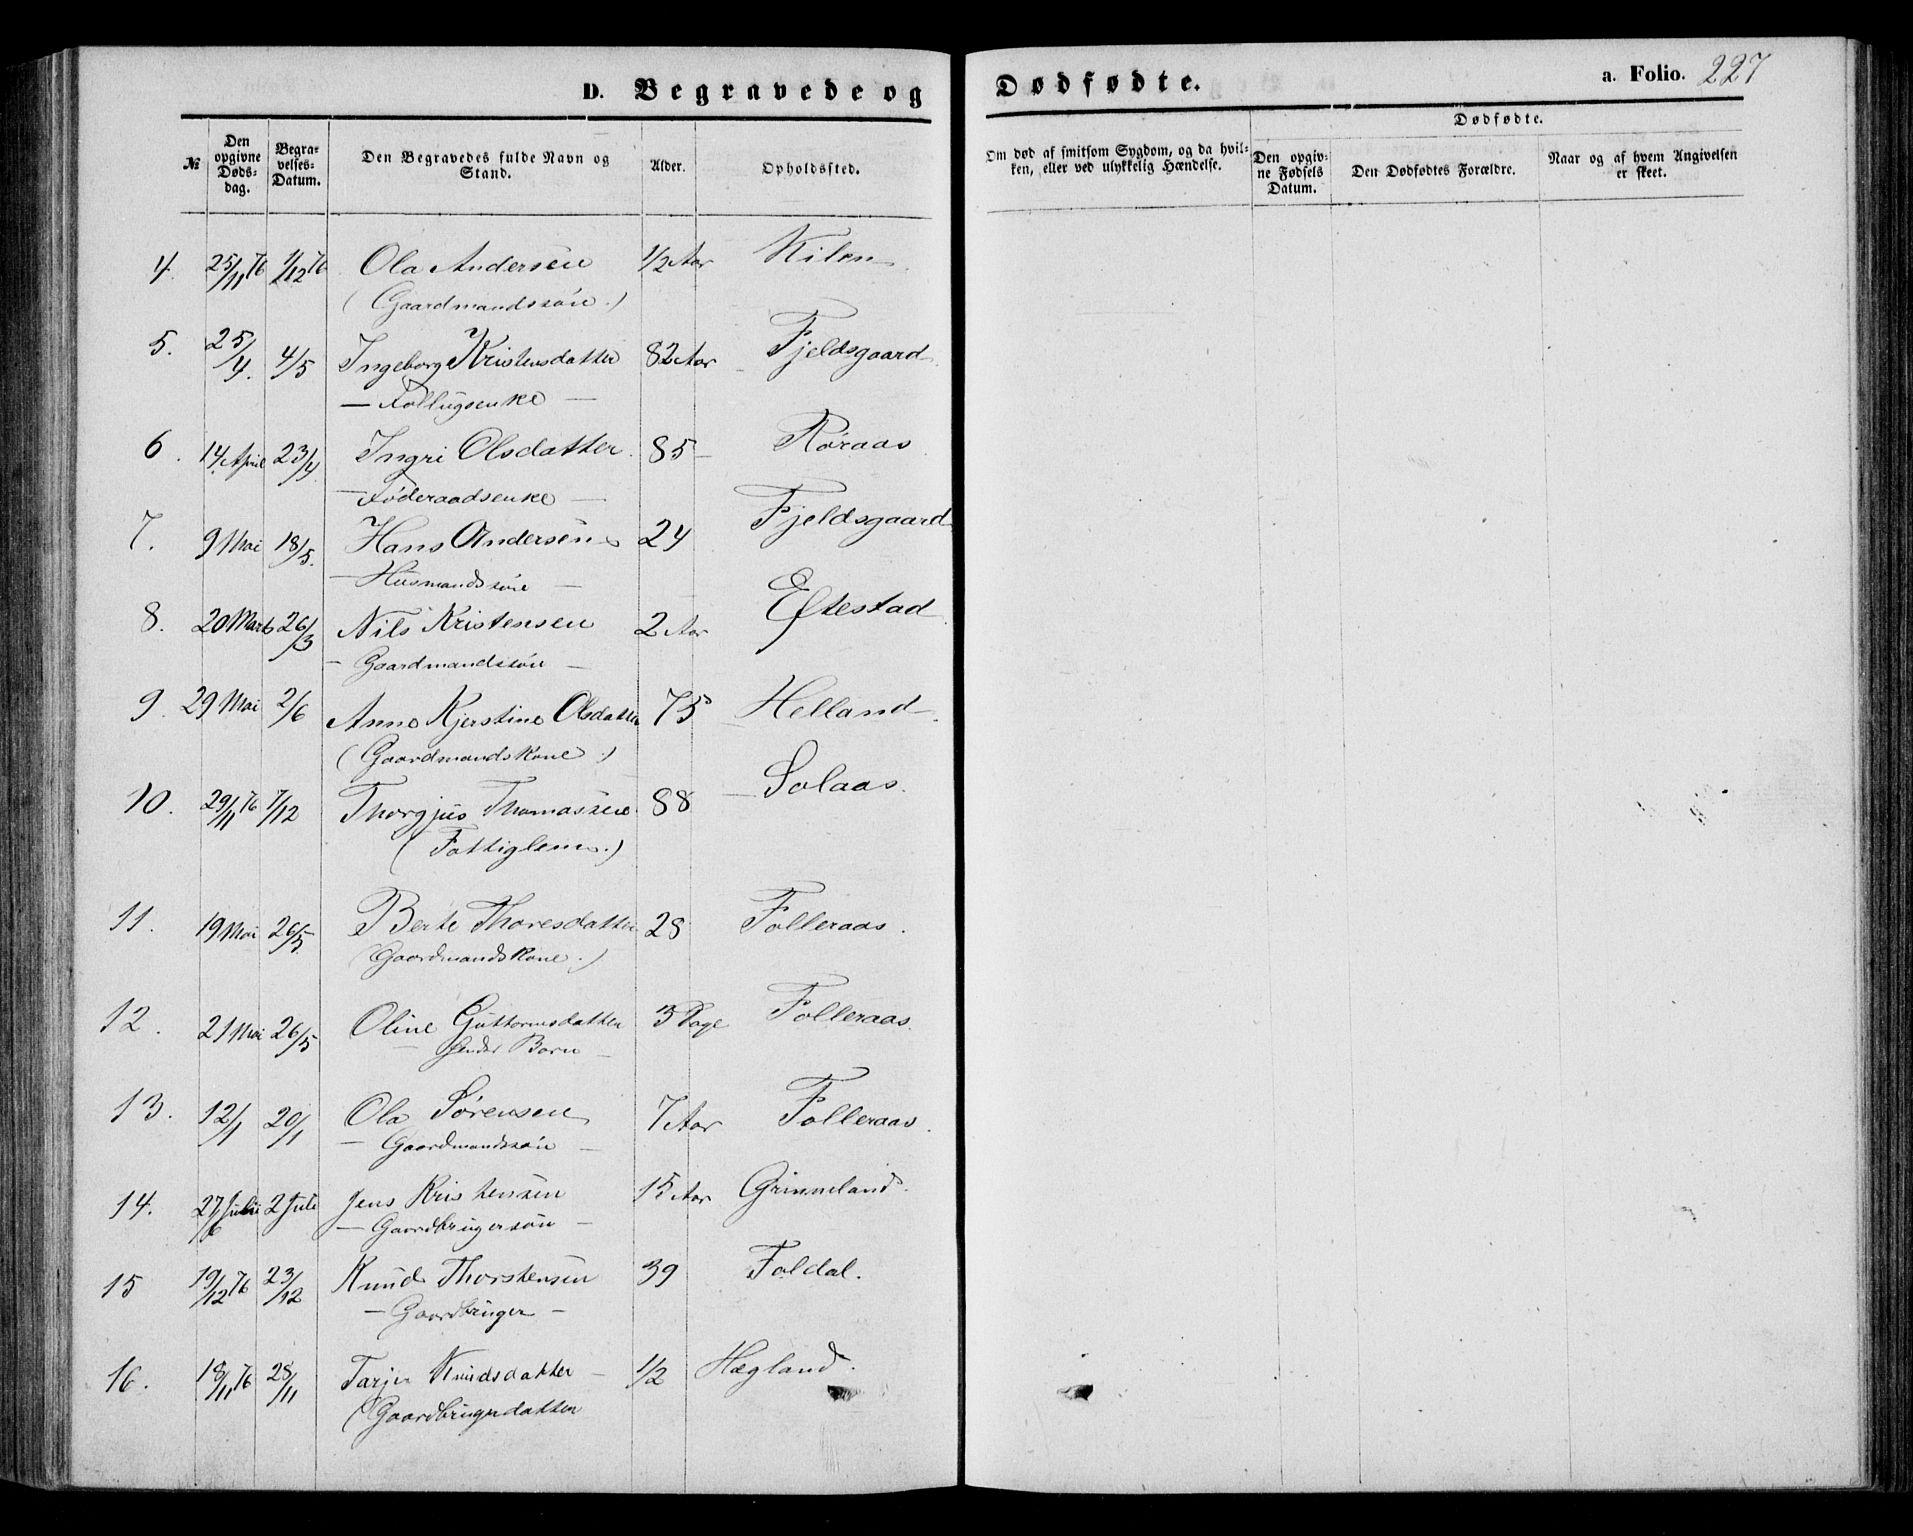 D. Begravede og Dødfødte.
a. Folio. 227
№
Den opgivne Døds-dag.
Begra-velses-Datum.
Den Begravedes fulde Navn og Stand.
Alder.
Opholdssted.
Om død af smitsom Sygdom, og da hvil-ken, eller ved ulykkelig Hændelse.
Dødfødte.
Den opgiv-ne Fødsels Datum.
Den Dødfødtes Forældre.
Naar og af hvem Angivelsen er skeet.
4. 25/11 76 1/12 76 Ola Andersen 1/2 Aar Kilen
(Gaardmandssøn.)
5. 25/4. 4/5 Ingeborg Kristensdatter 82 Aar Fjeldsgaard
— Follugsenke —
6. 14 April 23/4 Ingri Olsdatter 85 Røraas
— Føderaadsenke —
7. 9 Mai 18/5. Hans Andersen 24 Fjeldsgaard
— Husmandssøn —
8. 20 Marts 26/3 Nils Kristensen 2 Aar Eftestad
— Gaardmandssøn —
9. 29 Mai 2/6 Anne Kjerstine Olsdatter 75 Helland
(Gaardmandskone.)
10. 29/11 76 7/12 Thorgjus Thomassen 88 Solaas.
(Fattiglem.)
11. 19 Mai 26/5. Berte Thoresdatter 28 Folleraas.
(Gaardmandskone.)
12. 21 Mai 26/5 Oline Guttormsdatter 3 Dage Folleraas.
— hendes Barn —
13. 12/1 20/1 Ola Sørensen 7 Aar Folleraas.
— Gaardmandssøn —
14. 27/6 2 Juli Jens Kristensen 15 Aar Grimeland.
— Gaardbrugersøn —
15 19/12 76 23/12 Knud Thorstensen 39 Foldal.
— Gaardbruger —
16. 18/11 76 28/11 Tarjer Knudsdatter 1/2 Hægland.
(Gaardbrugerdatter